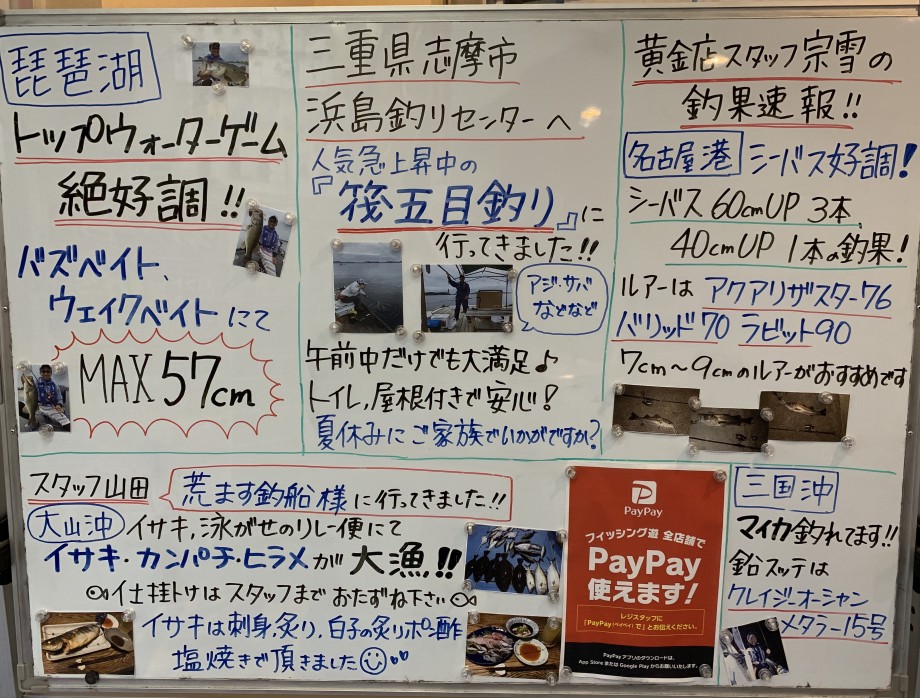 琵琶湖
トップウォーターゲーム
絶好調!!
バズベイト、
ウェイクベイトにて
MAX 57cm
三重県志摩市
浜島釣りセンターへ
人気急上昇中の
『筏五目釣り』に
行ってきました!!
アジ・サバ
などなど
午前中だけでも大満足♪
トイレ,屋根付きで安心!
夏休みにご家族でいかがですか?
黄金店スタッフ宗雪の
釣果速報!!
名古屋港 シーバス好調!
シーバス 60cmUP 3本,
40cmUP 1本の釣果!
ルアーは アクアリザスター76
バリッド70 ラビット90
7cm～9cmのルアーがおすすめです
スタッフ山田 荒ます釣船様に行ってきました!!
大山沖 イサキ,泳がせのリレー便にて
イサキ・カンパチ・ヒラメが 大漁!!
仕掛けはスタッフまで おたずね下さい
イサキは刺身,炙り,白子の炙りポン酢
塩焼きで頂きました
PayPay
フィッシング遊 全店舗で
PayPay
使えます!
レジスタッフに
「PayPay(ペイペイ)で」とお伝えください。
PayPayアプリのダウンロードは、
App Store または Google Play からお願いいたします。
三国沖
マイカ釣れてます!!
鉛スッテは
クレイジーオーシャン
メタラー15号